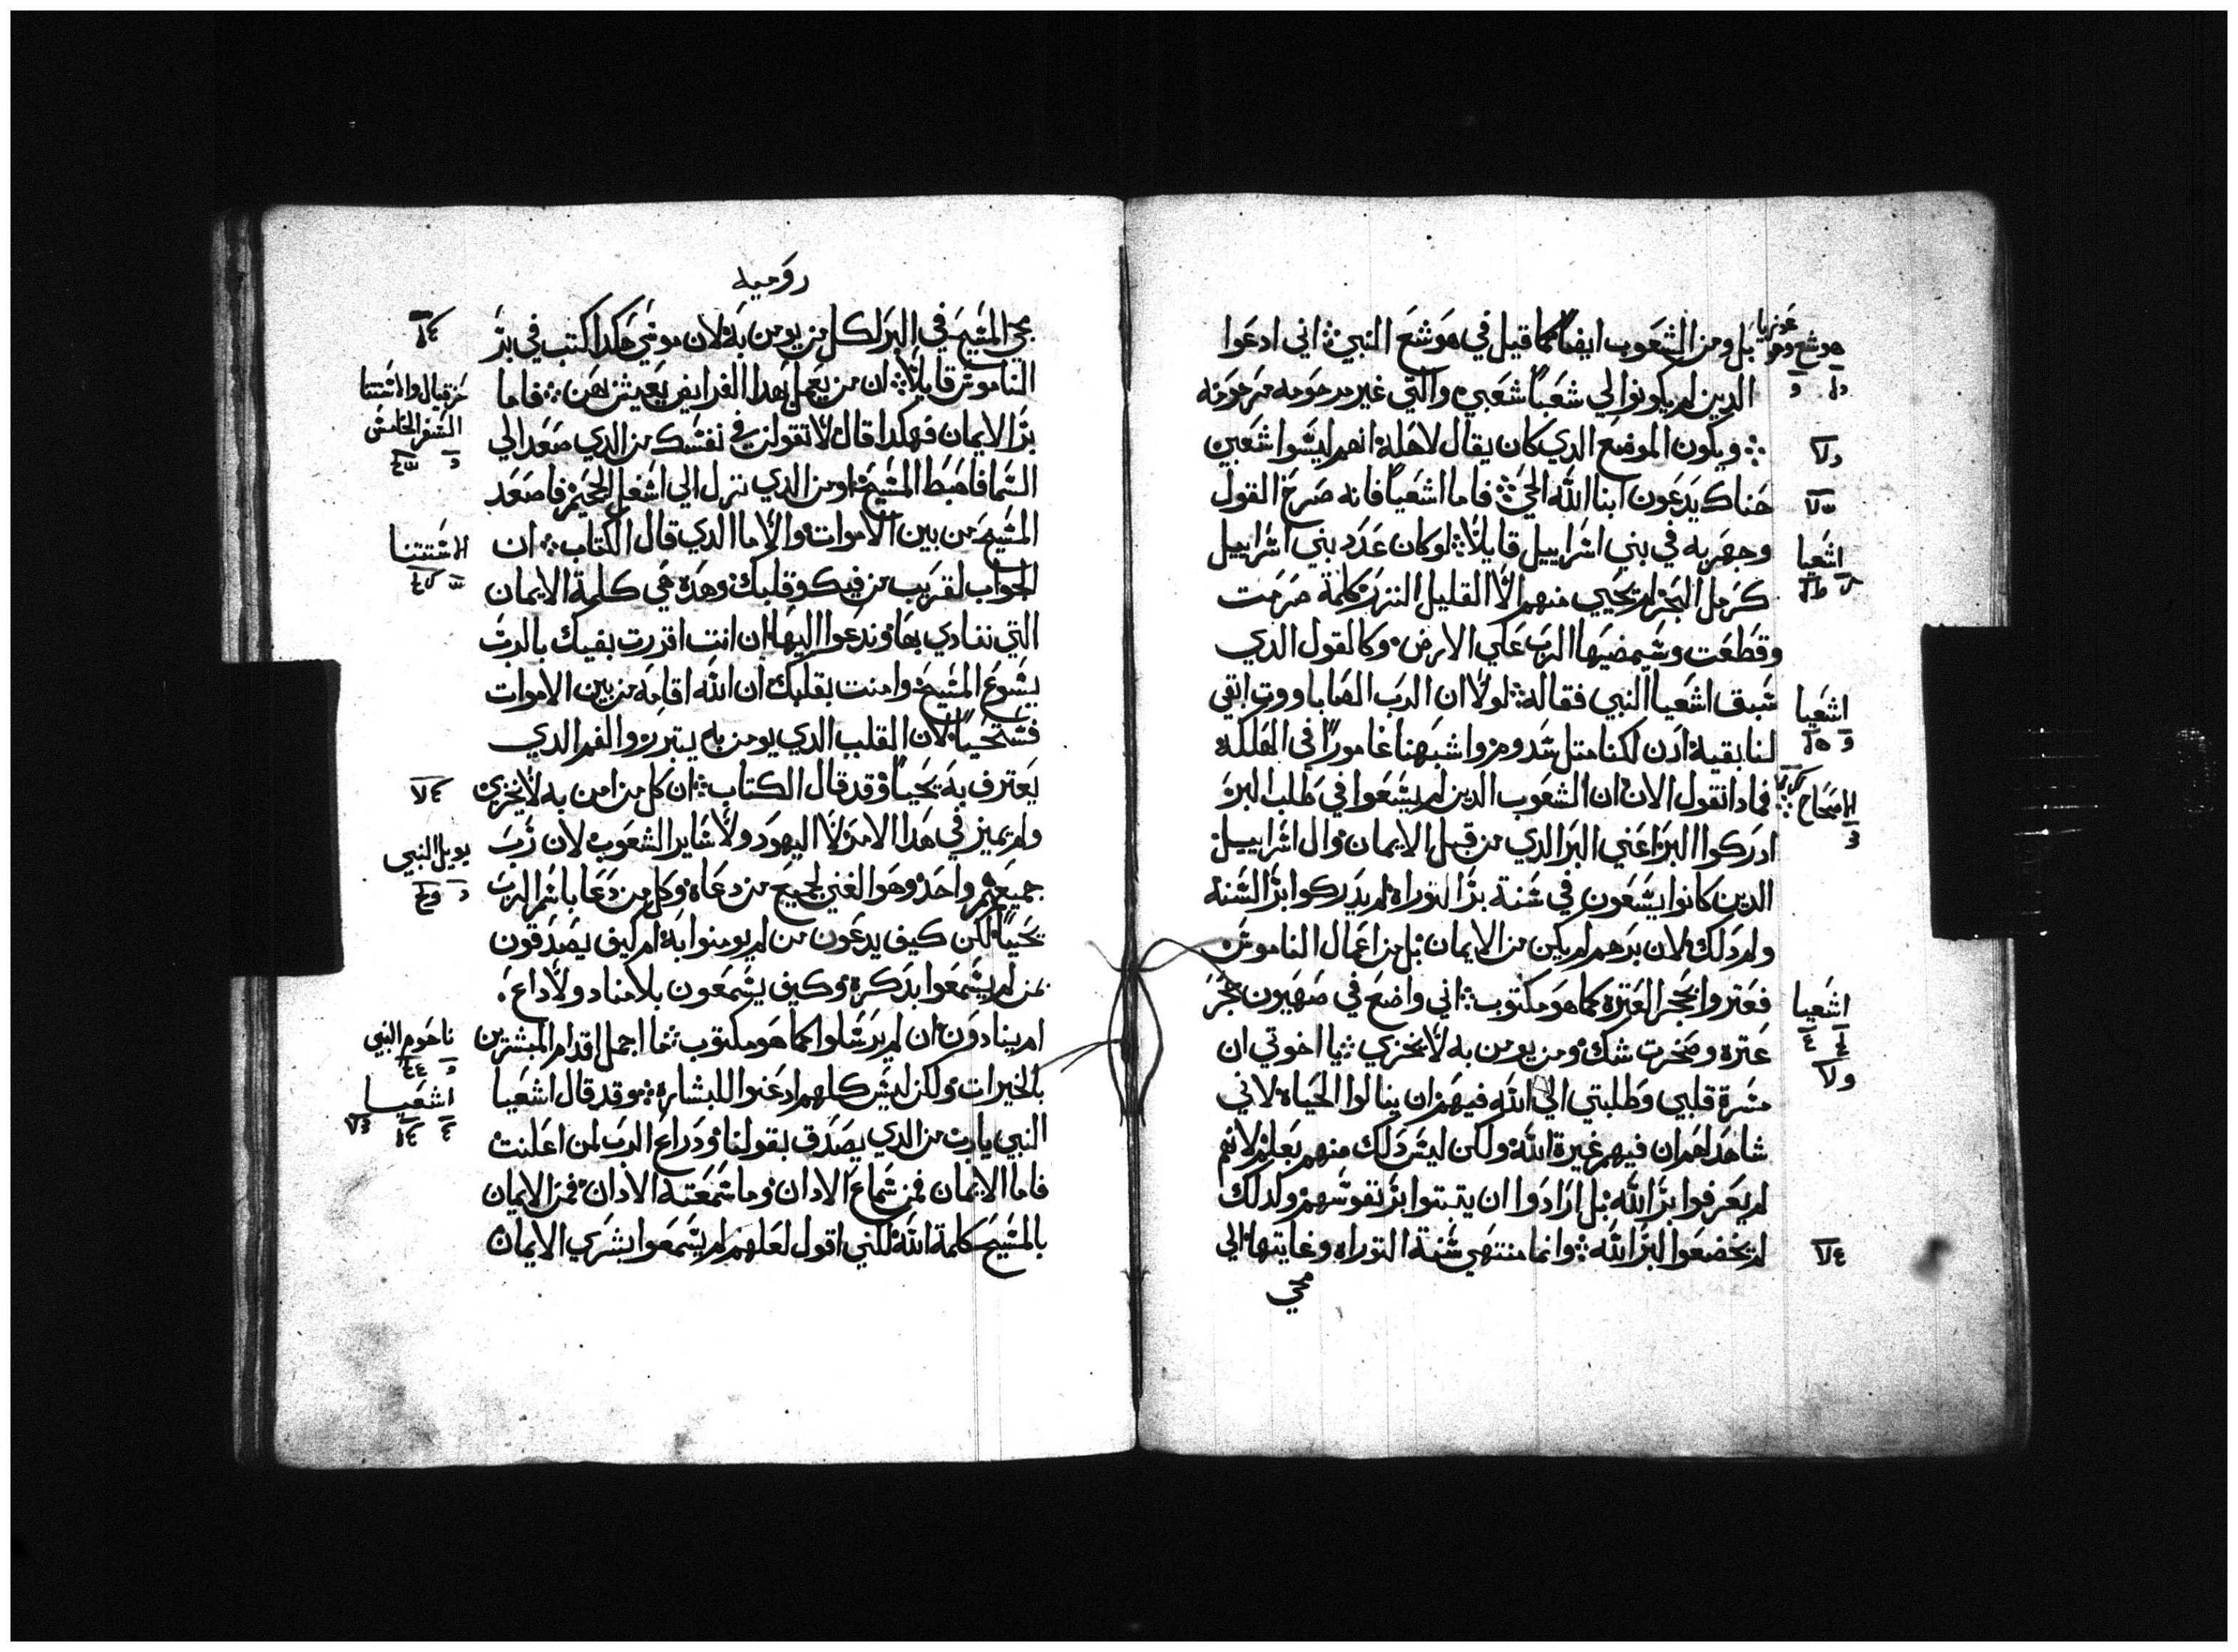 بل ومن الشعوب ايضا كما قيل في هوشع النبي اني ادعوا
الدين لم يكونوا لي شعبا شعبي والتي غير مرحومه مرحومه
ويكون الموضع الدي كان يقال لاهله انهم ليسوا شعبين
هناك يدعون ابنا الله الحي فاما اشعيا فانه صرح القول
وجهر به في بني اسراييل قايلا لو كان عدد بني اسراييل
كرمل البحر لم يحيي منهم الا القليل النزر كلمة صرمت
وقطعت وسيمضيها الرب علي الارض وكالقول الدي
سبق اشعيا النبي فقاله لولا ان الرب الصاباووت ابقي
لنا بقية ادن لكنا متل سدوم واشبهنا غامورا في الهلكه
فمادا نقول الان ان الشعوب الدين لم يسعوا في طلب البر
ادركوا البر اعني البر الدي من قبل الايمان وال اسراييل
الدين كانوا يسعون في سنة بر التوراه لم يدركوا بر السنة
ولم دلك لان برهم لم يكن من الايمان بل من اعمال الناموس
فعتروا بحجر العترة كما هو مكتوب اني واضع في صهيون حجر
عتره وصخرت شك ومن يومن به لا يخزي يا اخوتي ان
مسرة قلبي وطلبتي الي الله فيهم ان ينالوا الحياة لاني
شاهد لهم ان فيهم غيرة الله ولكن ليس دلك منهم بعلم لانهم
لم يعرفوا بر الله بل ارادوا ان يتبتوا بر نفوسهم ولدلك
لم يخضعوا لبر الله وانما منتهي سنة التوراه وغايتها الي
مجي
هوشع
اشعيا
اشعيا
الاصحاح
اشعيا
روميه
مجي المسيح في البر لكل من يومن به لان موسي هكدا كتب في بر
الناموس قايلا ان من يعمل بهدا الفرايض يعيش بهن فاما
بر الايمان فهكدا قال لا تقولن في نفسك من الدي صعد الي
السما فاهبط المسيح او من الدي نزل الي اسفل الجحيم فاصعد
المسيح من بين الاموات والا ما الدي قال الكتاب ان
الجواب لقريب من فيك وقلبك وهده هي كلمة الايمان
التي ننادي بها وندعوا اليها ان انت اقررت بفيك بالرب
يسوع المسيح وامنت بقلبك ان الله اقامه من بين الاموات
فستحيا لان القلب الدي يومن به يتبرر والفم الدي
يعترف به يحيا وقد قال الكتاب ان كل من امن به لا يخزي
ولم يميز في هدا الامر لا اليهود ولا ساير الشعوب لان رب
جميعهم واحد وهو الغني لجميع من دعاه وكل من دعا باسم الرب
يحيا لكن كيف يدعون من لم يومنوا به ام كيف يصدقون
بمن لم يسمعوا بدكره وكيف يسمعون بلا مناد ولا داع
ام ينادون ان لم يرسلوا كما هو مكتوب ما اجمل اقدام المبشرين
بالخيرات ولكن ليس كلهم ادعنوا للبشاره وقد قال اشعيا
النبي يارب من الدي يصدق بقولنا ودراع الرب لمن اعلنت
فاما الايمان فمن سماع الادان وما سمعته الادان فمن الايمان
بالمسيح كلمة الله لكني اقول لعلهم لم يسمعوا بشري الايمان
حزقيال والاستتنا
السفر الخامس
الاستتنا
يويل النبي
ناحوم النبي
اشعيا